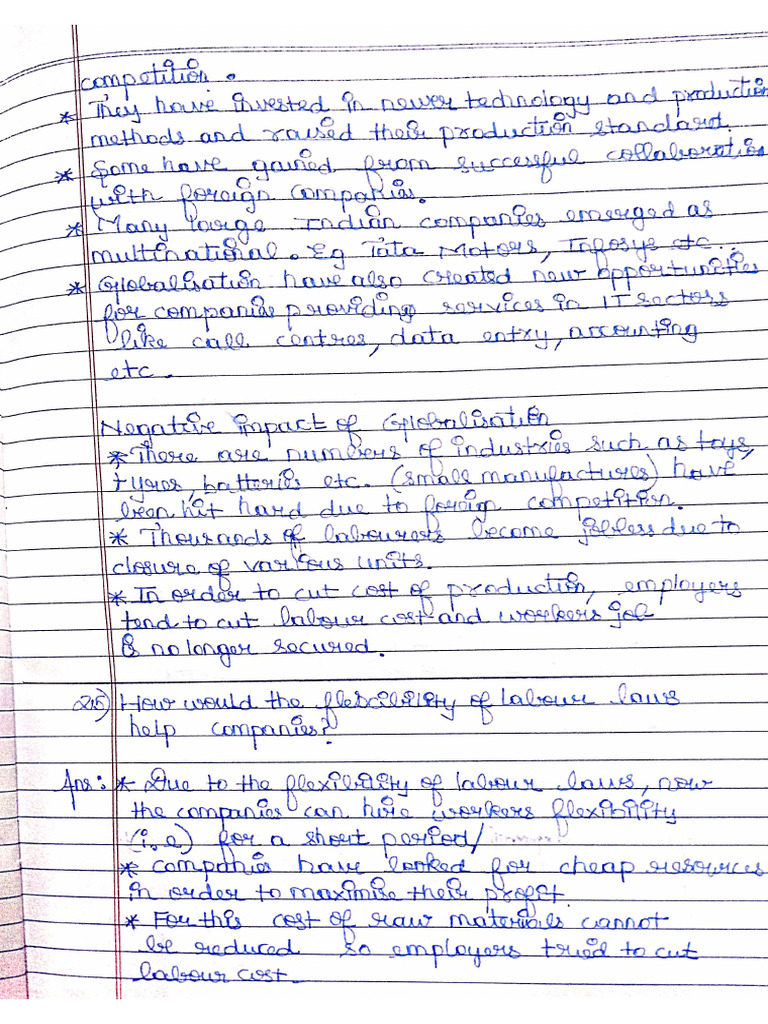 competition.
* They have invested in newer technology and production
methods and raised their production standard.
* Some have gained from successful collaboration
with foreign companies.
* Many large Indian companies emerged as
multinational. Eg Tata Motors, Infosys etc.
* Globalisation have also created new opportunities
for companies providing services in IT sectors
like call centres, data entry, accounting
etc.
Negative impact of Globalisation
* There are numbers of industries such as toys,
tyres, batteries etc. (small manufactures) have
been hit hard due to foreign competition.
* Thousands of labourers become jobless due to
closure of various units.
* In order to cut cost of production, employers
tend to cut labour cost and workers job
is no longer secured.
Q15) How would the flexibility of labour laws
help companies?
Ans: * Due to the flexibility of labour laws, now
the companies can hire workers flexibility
(i.e) for a short period/
* companies have looked for cheap resources
in order to maximise their profit.
* For this cost of raw materials cannot
be reduced so employers tried to cut
labour cost.